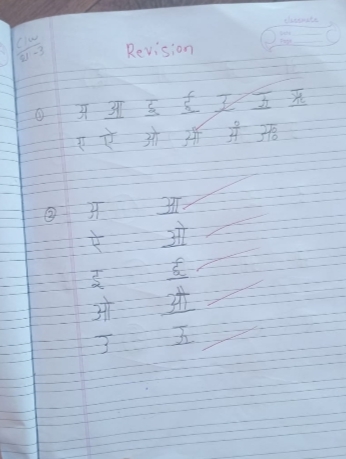 classmate
C/W
Revision
① अ आ इ ई उ ऊ ऋ
ए ऐ ओ औ अं अः
② अ आ
ऐ ओ
इ ई
ओ औ
उ ऊ